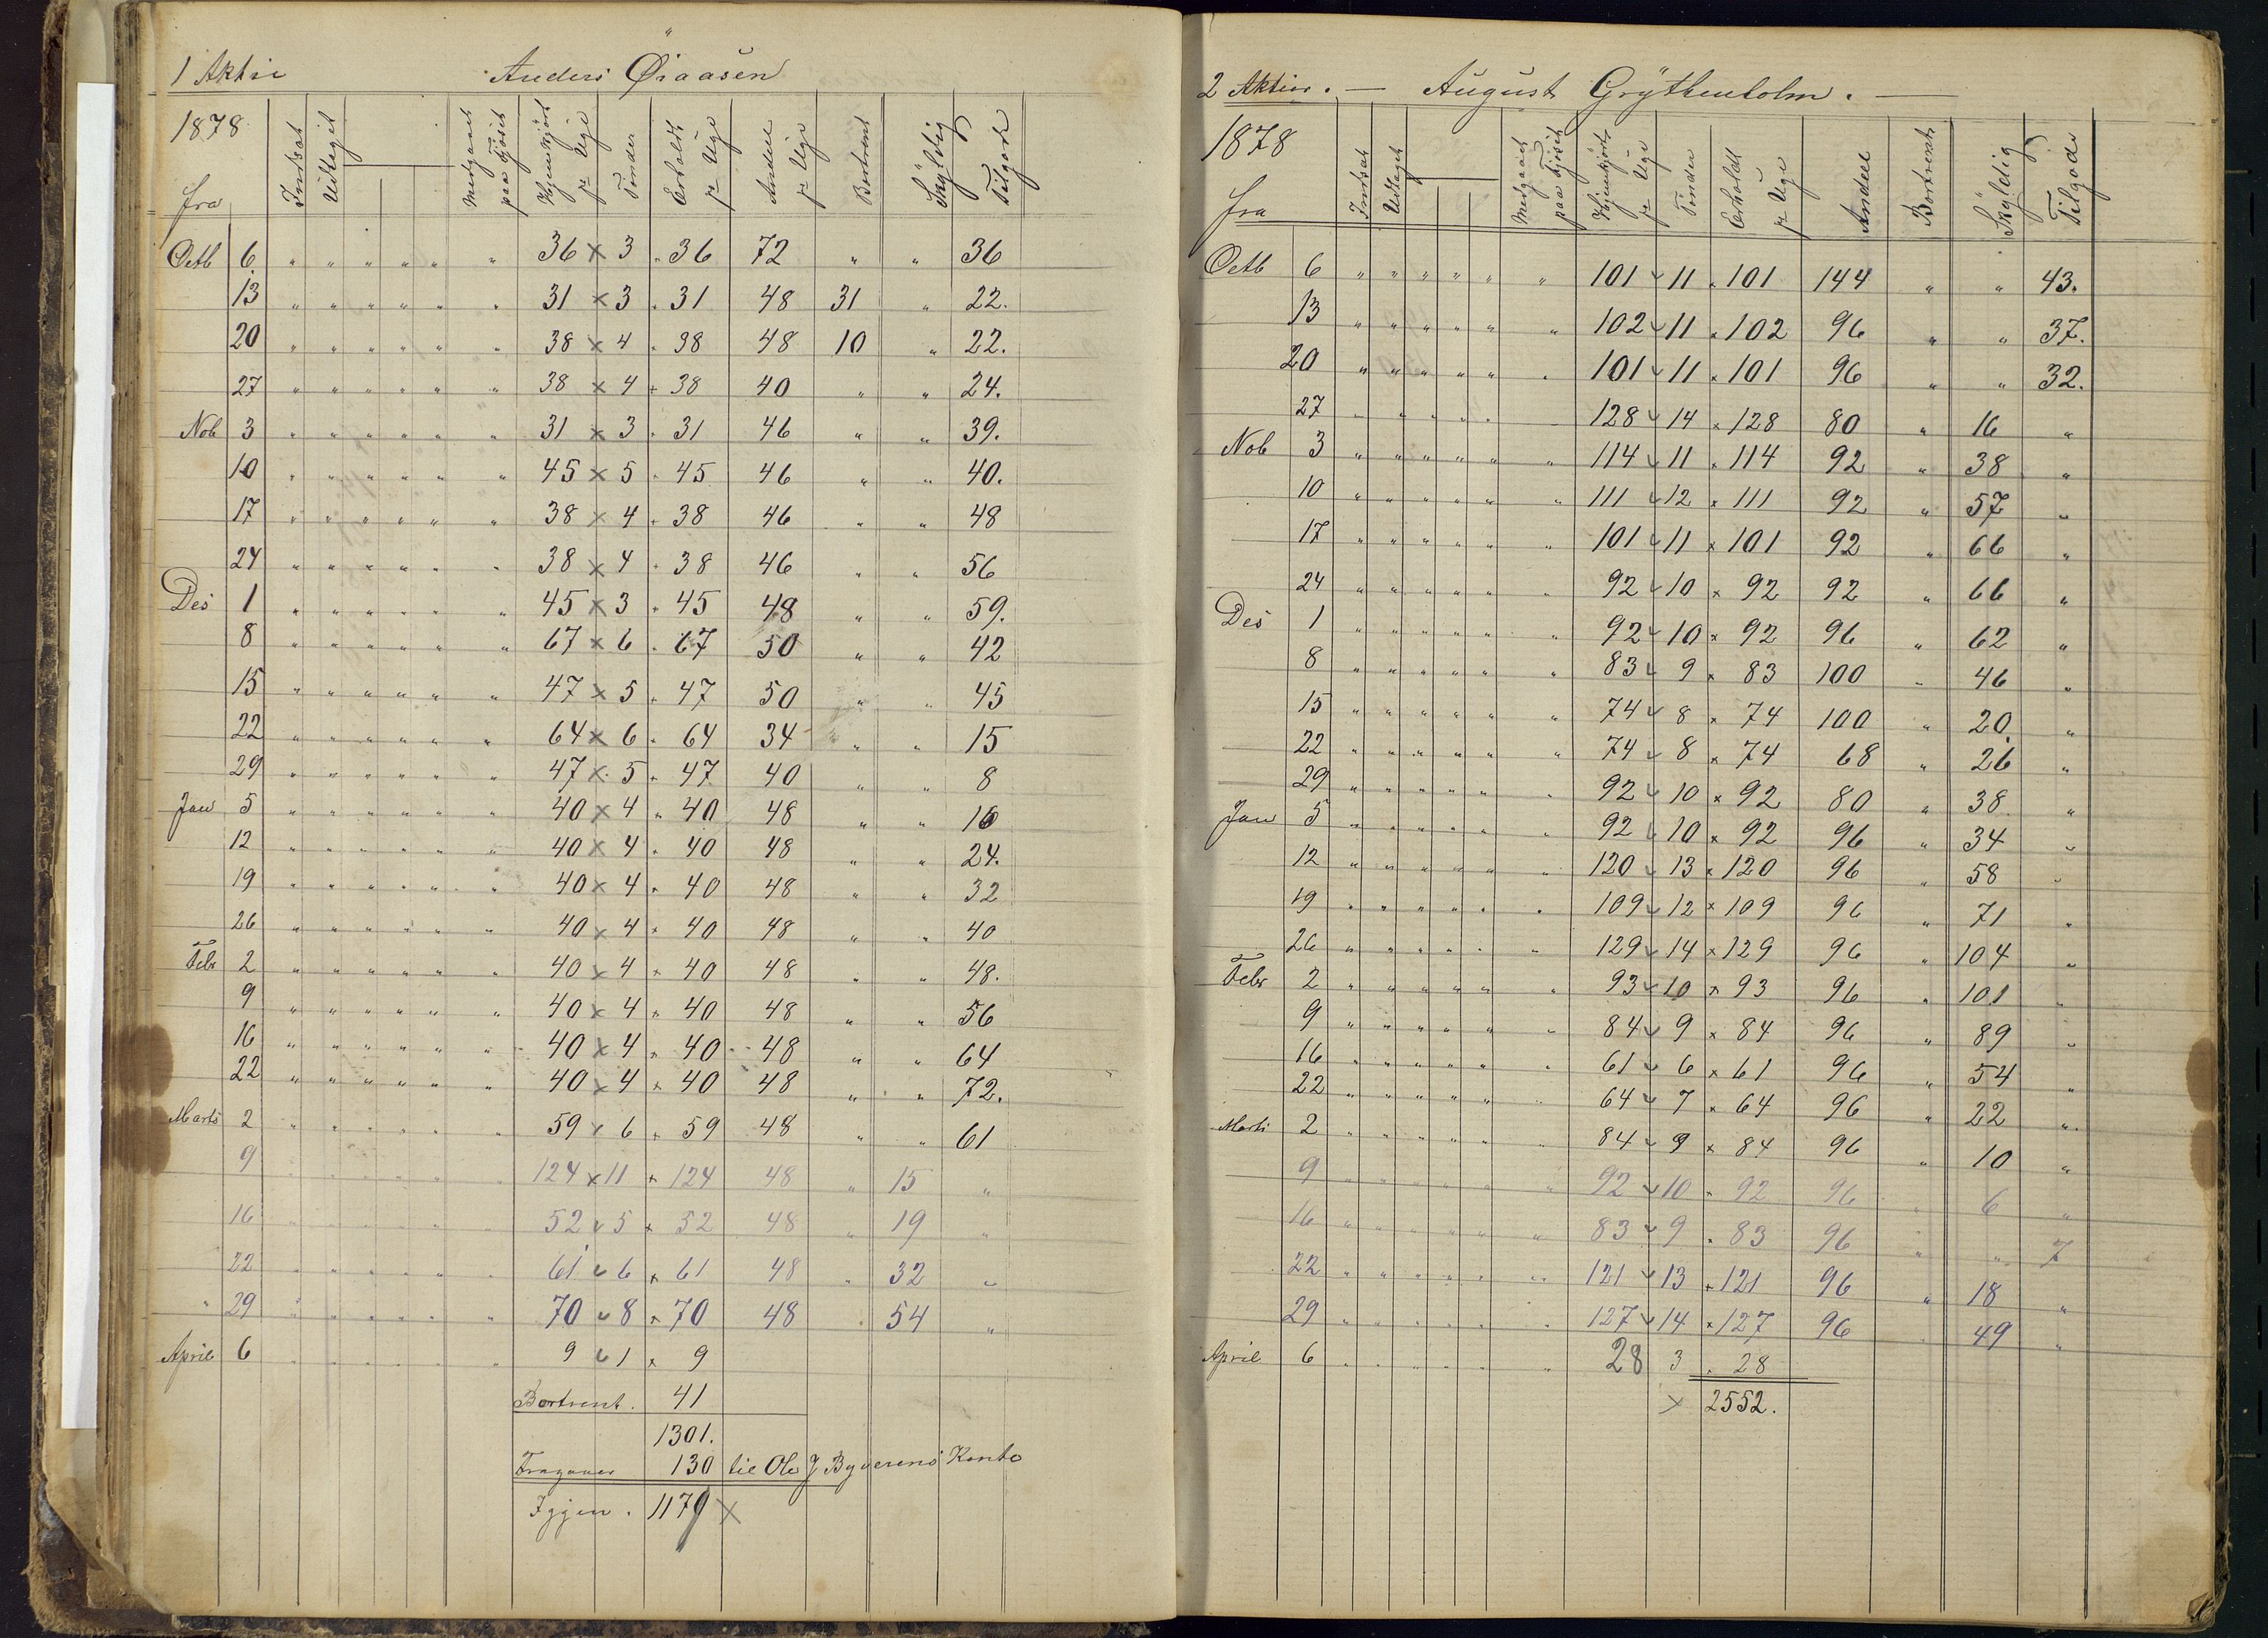 1 Aktie Anders Øiaasen
1878 Indsat Udtaget Medgaaet paa Fjøset Hjemkjört pr Uge Tönder Erholdt pr Uge Andeel pr Uge Bortrent Skÿldig Tilgode
fra
Octb 6 " " " " " " 36 × 3 " 36 72 " " 36
13 " " " " " " 31 × 3 " 31 48 31 " 22.
20 " " " " " " 38 × 4 " 38 48 10 " 22.
27 " " " " " " 38 × 4 " 38 40 " " 24.
Nob 3 " " " " " " 31 × 3 " 31 46 " " 39.
10 " " " " " " 45 × 5 " 45 46 " " 40.
17 " " " " " " 38 × 4 " 38 46 " " 48
24 " " " " " " 38 × 4 " 38 46 " " 56
Des 1 " " " " " " 45 × 3 " 45 48 " " 59.
8 " " " " " " 67 × 6 " 67 50 " " 42
15 " " " " " " 47 × 5 " 47 50 " " 45
22 " " " " " " 64 × 6 " 64 34 " " 15
29 " " " " " " 47 × 5 " 47 40 " " 8
Jan 5 " " " " " " 40 × 4 " 40 48 " " 16
12 " " " " " " 40 × 4 " 40 48 " " 24.
19 " " " " " " 40 × 4 " 40 48 " " 32
26 " " " " " " 40 × 4 " 40 48 " " 40
Febr 2 " " " " " " 40 × 4 × 40 48 " " 48.
9 " " " " " " 40 × 4 × 40 48 " " 56
16 " " " " " " 40 × 4 × 40 48 " " 64
22 " " " " " " 40 × 4 × 40 48 " " 72.
Marts 2 " " " " " " 59 × 6 × 59 48 " " 61
9 " " " " " " 124 × 11 × 124 48 " 15 "
16 " " " " " " 52 × 5 × 52 48 " 19 "
22 " " " " " " 61 × 6 × 61 48 " 32 "
" 29 " " " " " " 70 × 8 × 70 48 " 54 "
April 6 " " " " " " 9 × 1 × 9
Bortrent. 41
1301.
Fragaaer 130 til Ole J Byverens Konto
Iggjen. 1179 ×
2 Aktier. — August Grÿthenholm. —
1878 Indsat Udtaget Medgaaet paa Fjöset Hjemkjört pr Uge Tönder Erholdt pr Uge Andeel Bortrent Skÿldig Tilgode
fra
Octb 6 " " " " " " 101 × 11 × 101 144 " " 43.
13 " " " " " " 102 × 11 × 102 96 " " 37.
20 " " " " " " 101 × 11 × 101 96 " " 32.
27 " " " " " " 128 × 14 × 128 80 " 16 "
Nob 3 " " " " " " 114 × 11 × 114 92 " 38 "
10 " " " " " " 111 × 12 × 111 92 " 57 "
17 " " " " " " 101 × 11 × 101 92 " 66 "
24 " " " " " " 92 × 10 × 92 92 " 66 "
Des 1 " " " " " " 92 × 10 × 92 96 " 62 "
8 " " " " " " 83 × 9 × 83 100 " 46 "
15 " " " " " " 74 × 8 × 74 100 " 20 "
22 " " " " " " 74 × 8 × 74 68 " 26 "
29 " " " " " " 92 × 10 × 92 80 " 38 "
Jan 5 " " " " " " 92 × 10 × 92 96 " 34 "
12 " " " " " " 120 × 13 × 120 96 " 58 "
19 " " " " " " 109 × 12 × 109 96 " 71 "
26 " " " " " " 129 × 14 × 129 96 " 104 "
Febr 2 " " " " " " 93 × 10 × 93 96 " 101 "
9 " " " " " " 84 × 9 × 84 96 " 89 "
16 " " " " " " 61 × 6 × 61 96 " 54 "
22 " " " " " " 64 × 7 × 64 96 " 22 "
Marts 2 " " " " " " 84 × 9 × 84 96 " 10 "
9 " " " " " " 92 × 10 × 92 96 " 6 "
16 " " " " " " 83 × 9 × 83 96 " " 7
22 " " " " " " 121 × 13 × 121 96 " 18 "
29 " " " " " " 127 × 14 × 127 96 " 49 "
April 6 " " " " " " 28 3 × 28
× 2552.